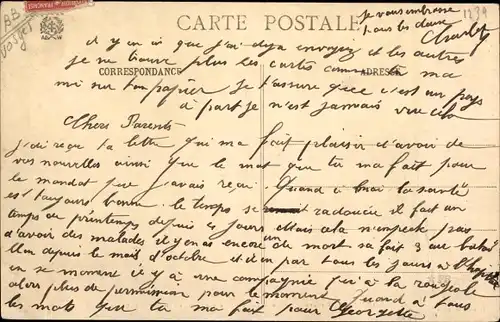 88
Vosges
CARTE POSTALE
je vous embrasse
tous les deux
Charles
1239
il y en a que j'ai deja envoyez et les autres
je ne trouve plus les cartes comme tu ma
CORRESPONDANCE
ADRESSE
mi sur ton papier je t'assure que c'est un pays
à part je n'est jamais vue
Chers Parents
J'ai reçu la lettre qui ma fait plaisir d'avoir de
vos nouvelles ainsi que le mot que tu ma fait pour
le mandat que j'avais reçu. Quand à moi la santé
est toujours bonne. le temps se radoucie il fait un
temps de printemps depuis jours mais cela n'empeck pas
d'avoir des malades il y en as encore un de mort sa fait 3 au
depuis le mois d'octobre et il en par tous les jours à l'hopital
en se moment il y a une compagnie qui à la rougeole
alors plus de permission pour le moment Quand à tous
les mots que tu ma fait pour Georgette